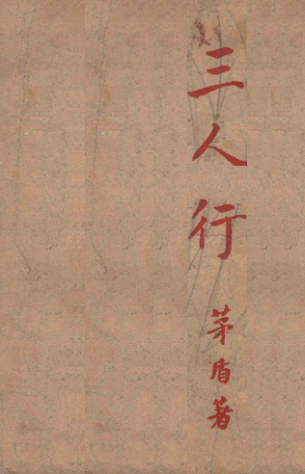 三人行
茅盾著